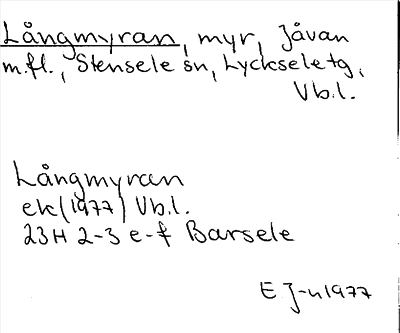 Långmyran, myr, Jåvan
m.fl., Stensele sn, Lycksele tg,
Vb.l.
Långmyran
ek (1977) Vb.l.
23H 2-3 e-f Barsele
E J-n 1977